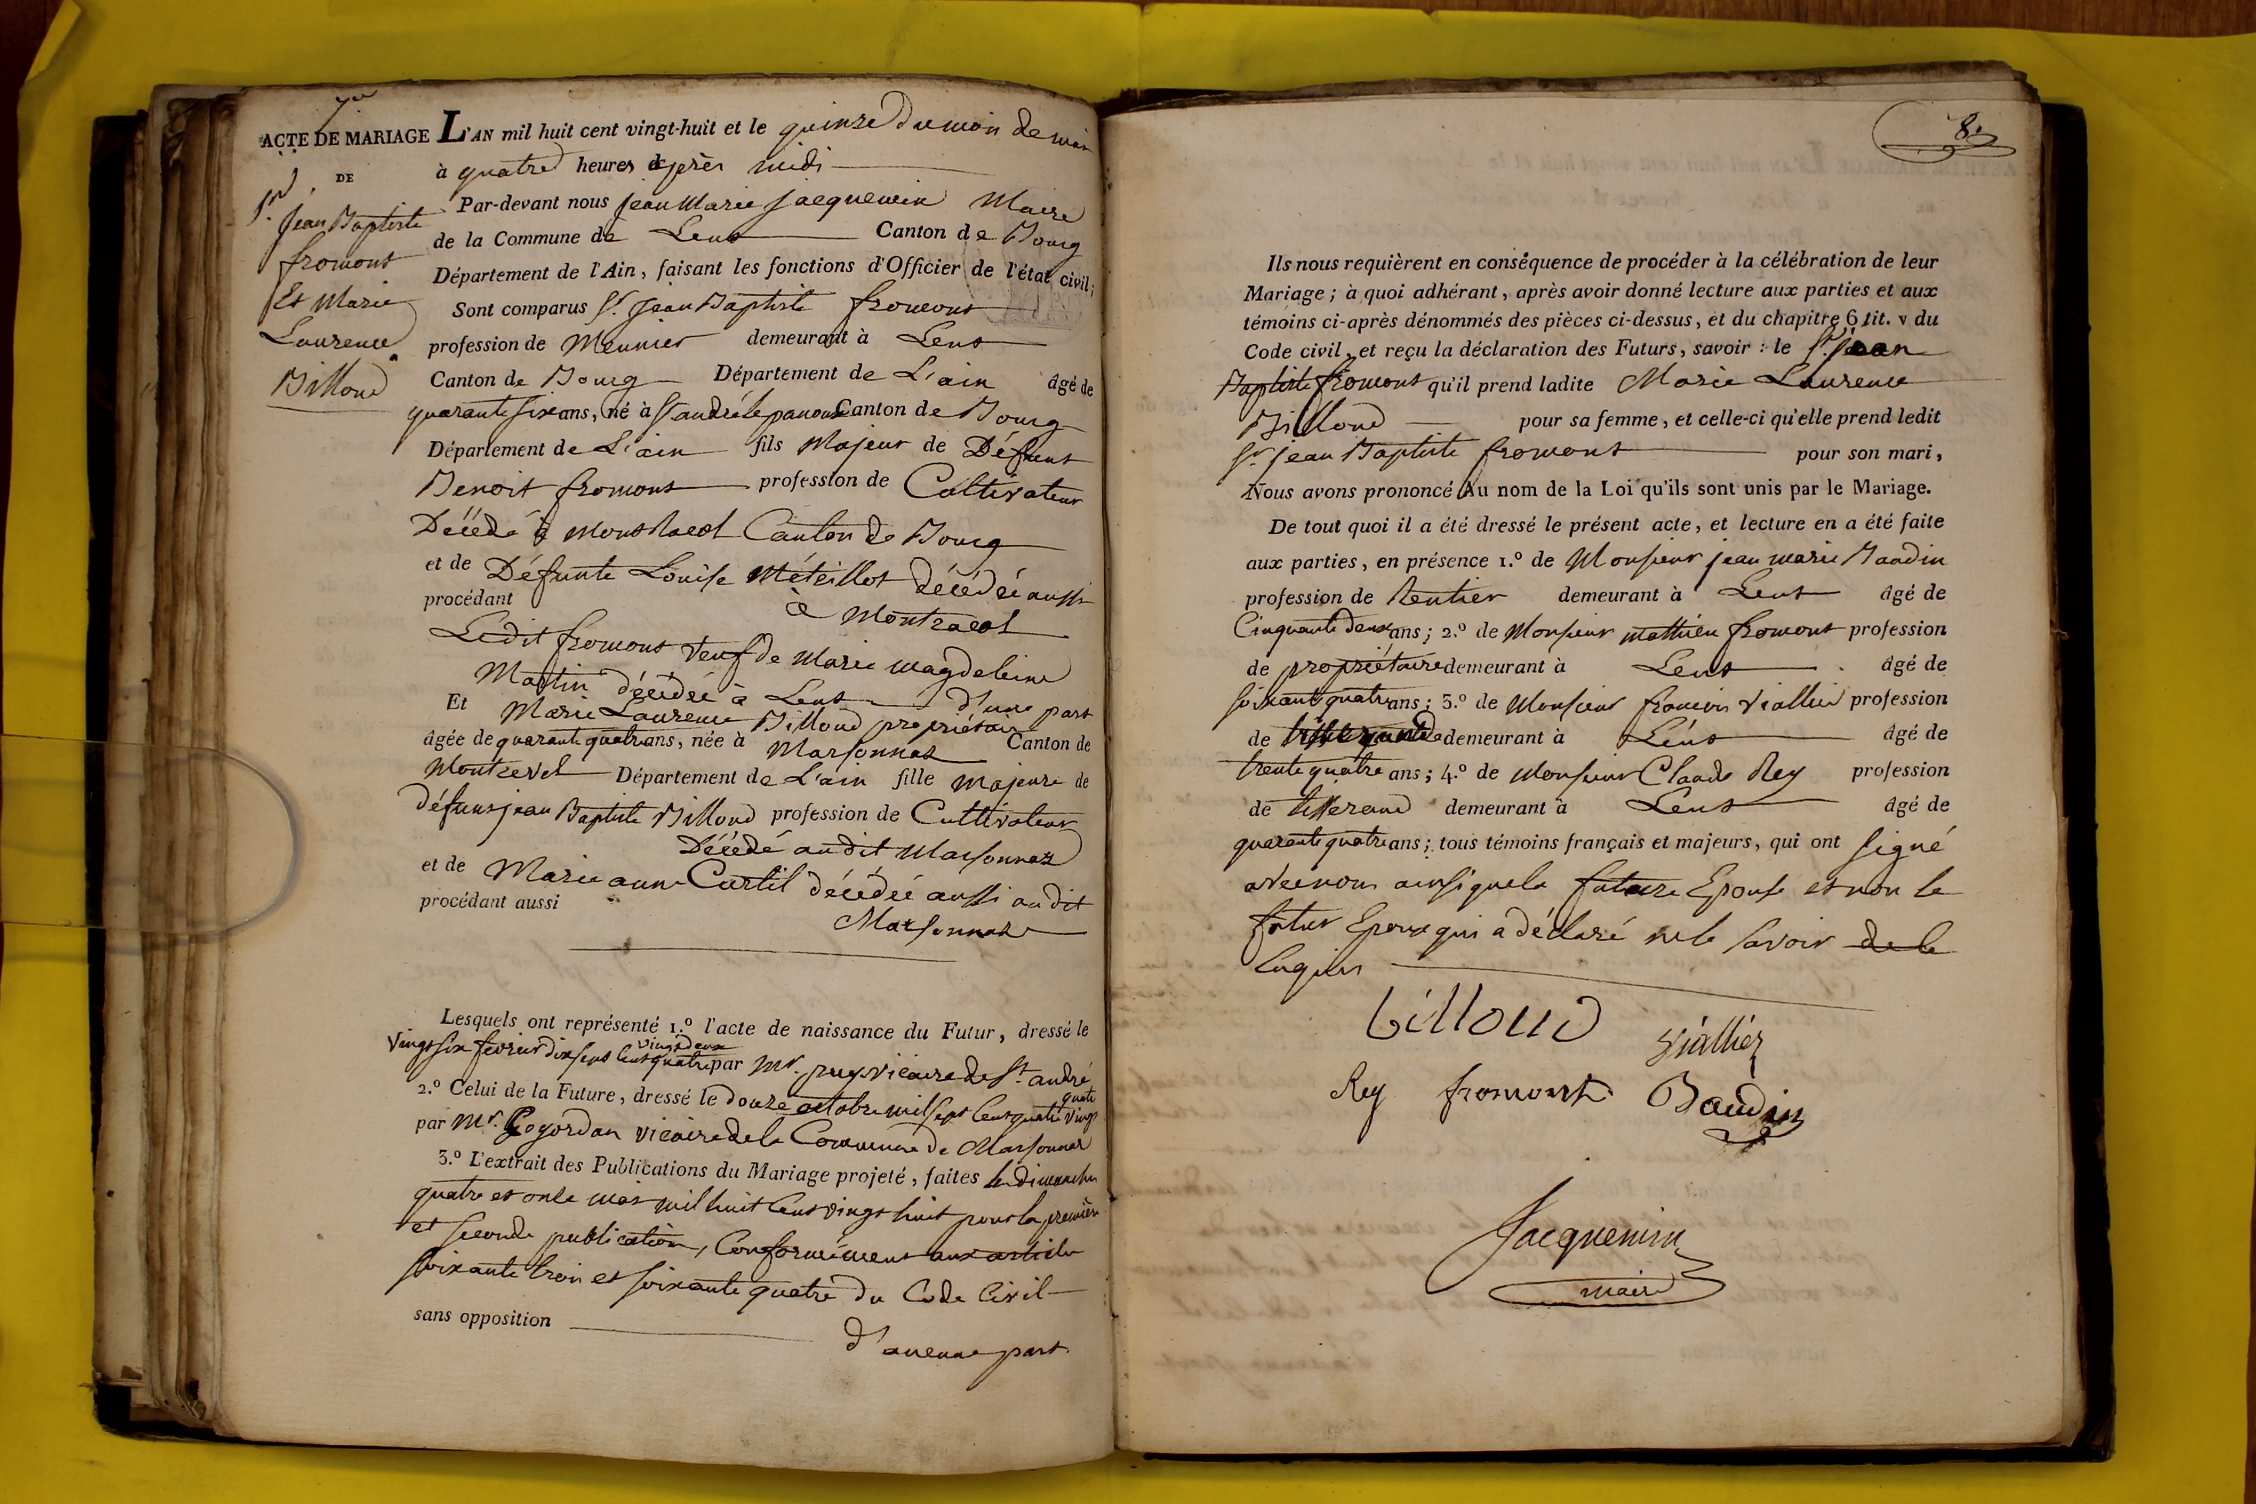 7me
ACTE DE MARIAGE
DE
Sr. Jean Baptiste
fromont
Et Marie
Laurence
Billoud
L'AN mil huit cent vingt-huit et le quinze du mois de mai
à quatre heures après midi
Par-devant nous jean Marie jacquemin Maire
de la Commune de Lent Canton de Bourg
Département de l'Ain, faisant les fonctions d'Officier de l'état civil;
Sont comparus Sr. jean Baptiste fromont
profession de Meunier demeurant à Lent
Canton de Bourg Département de L'ain âgé de
quarante six ans, né à St andré le panoux Canton de Bourg
Département de L'ain fils Majeur de Défunt
Benoit fromont profession de Cultivateur
Décédé à Montracol Canton de Bourg
et de Défunte Louise Méteillot décédée aussi
procédant à Montracol
Ledit fromont veuf de Marie magdeleine
Martin décédée à Lent d'une part
Et Marie Laurence Billoud propriétaire
âgée de quarante quatre ans, née à Marsonnas Canton de
Montrevel Département de L'ain fille majeure de
défunt jean Baptiste Billoud profession de Cultivateur
Décédé audit Marsonnas
et de Marie anne Curtil décédée aussi audit
procédant aussi Marsonnas
Lesquels ont représenté 1.º l'acte de naissance du Futur, dressé le
vingt deux
vingt six février dix sept cent quatre par Mr. puy vicaire de St. andré
2.º Celui de la Future, dressé le douze octobre mil sept cent quatre vingt
quatre
par Mr. Goyordan vicaire de la Commune de Marsonnas
3.º L'extrait des Publications du Mariage projeté, faites les dimanches
quatre et onze mai mil huit cent vingt huit pour la première
et seconde publication, Conformément aux articles
soixante trois et soixante quatre du Code Civil
sans opposition d'aucune part
8.
Ils nous requièrent en conséquence de procéder à la célébration de leur
Mariage; à quoi adhérant, après avoir donné lecture aux parties et aux
témoins ci-après dénommés des pièces ci-dessus, et du chapitre 6 tit. v du
Code civil, et reçu la déclaration des Futurs, savoir: le Sr. jean
Baptiste fromont qu'il prend ladite Marie Laurence
Billoud pour sa femme, et celle-ci qu'elle prend ledit
Sr. jean Baptiste fromont pour son mari,
Nous avons prononcé Au nom de la Loi qu'ils sont unis par le Mariage.
De tout quoi il a été dressé le présent acte, et lecture en a été faite
aux parties, en présence 1.º de Monsieur jean marie Baudin
profession de Rentier demeurant à Lent âgé de
Cinquante deux ans; 2.º de Monsieur mathieu fromont profession
de propriétaire demeurant à Lent âgé de
soixante quatre ans; 3.º de Monsieur francois viallier profession
de demeurant à Lent âgé de
trente quatre ans; 4.º de Monsieur Claude Rey profession
de tisserand demeurant à Lent âgé de
quarante quatre ans; tous témoins français et majeurs, qui ont signé
avec nous ainsi que la future Epouse et non le
futur Epoux qui a déclaré ne le savoir de le
enquis
billoud
Viallier
Rey fromont Baudin
Jacquemin
maire